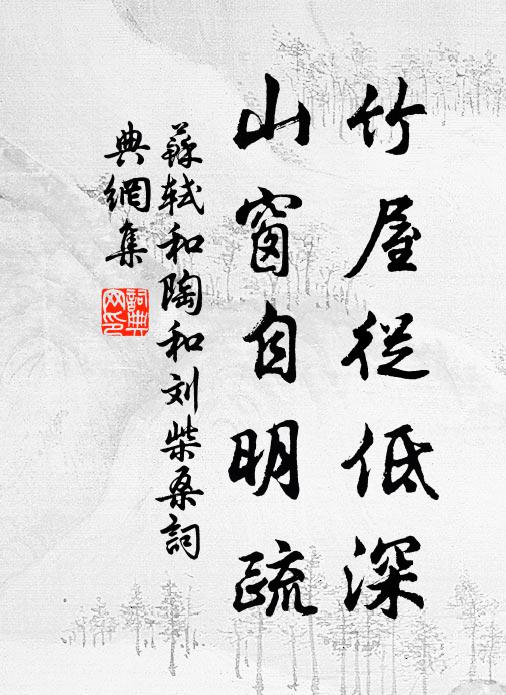 竹屋從低深
山窗自明疏
蘇軾和陶和刘柴桑詞
典網集
詞典
网印